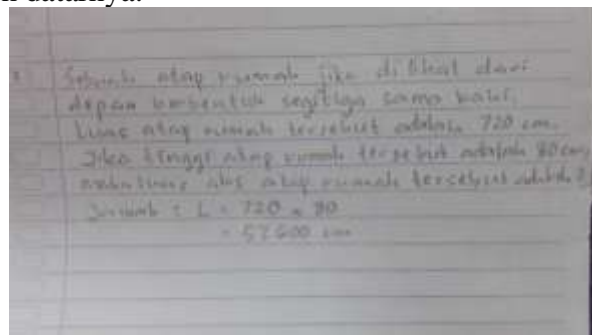 datarnya.
Sebuah atap rumah jika dilihat dari
depan berbentuk segitiga sama kaki.
Luas atap rumah tersebut adalah 720 cm.
Jika tinggi atap rumah tersebut adalah 80 cm,
atap rumah tersebut adalah?
Jawab : L = 720 x 80
= 57600 cm